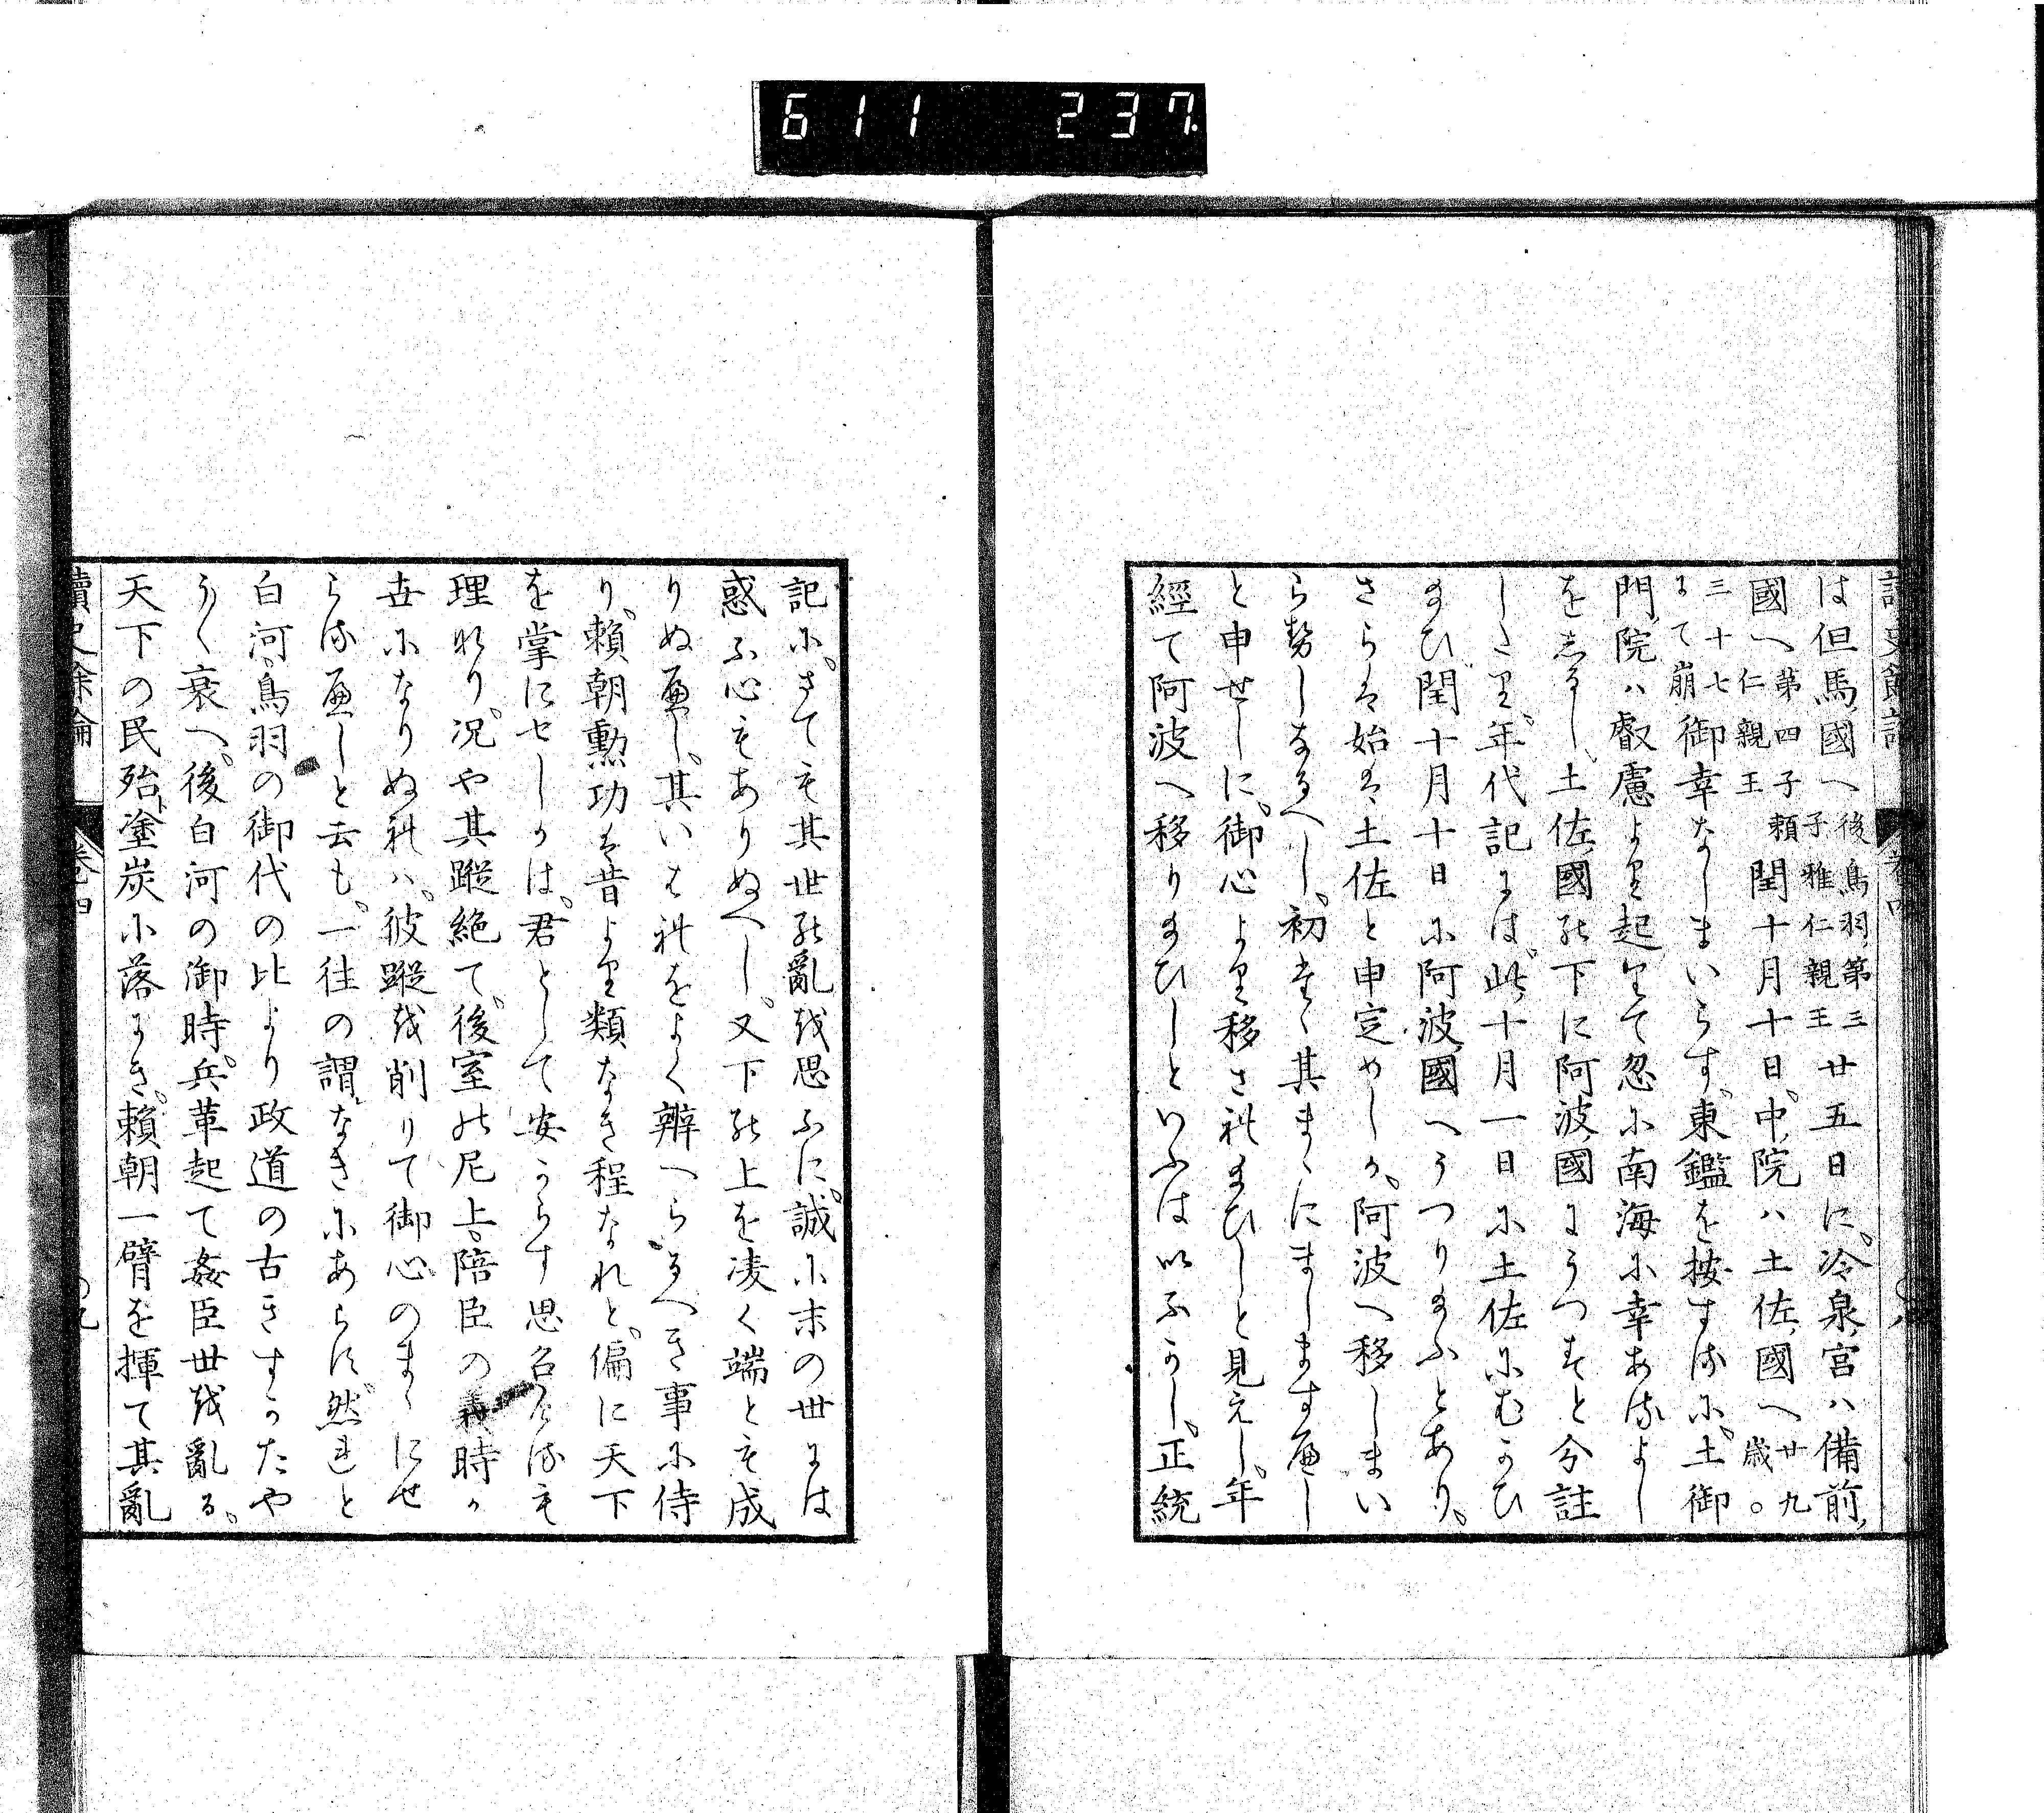 611 237
讀史餘論 卷四
は但馬國へ後鳥羽第三子雅仁親王廿五日に冷泉宮ハ備前
國へ第四子頼仁親王閏十月十日中院ハ土佐國へ廿九歳。
三十七にて崩御幸なしまいらす東鑑を按するに土御
門院ハ叡慮より起りて忽に南海に幸あるよし
をしるし土佐國の下に阿波國にうつすと今註
したり年代記には此十月一日に土佐にむかひ
給ひ閏十月十日に阿波國へうつり給ふとあり。
さらは始は土佐と申定めしか阿波へ移しまい
らせしなるへし初たゝ其まゝにましますへし
と申せしに御心より移され給ひしと見えし年
經て阿波へ移り給ひしといふは以ふかし正統
記にさても其世の亂を思ふに誠に末の世には
惑ふ心もありぬへし又下の上を凌く端とも成
りぬへし其いはれをよく辨へらるへき事に侍
り頼朝勲功は昔より類なき程なれと偏に天下
を掌にせしかは君として安からす思召るも
理なり況や其蹤絶て後室の尼上陪臣の義時か
世になりぬれハ彼蹤を削りて御心のまゝにせ
らるへしと云も一往の謂なきにあらす然れと
白河鳥羽の御代の比より政道の古きすかたや
うく衰へ後白河の御時兵革起て姦臣世を亂る。
天下の民殆塗炭に落にき頼朝一臂を揮て其亂
讀史餘論 卷四